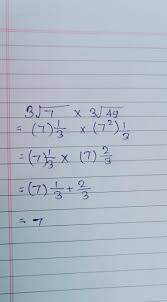 3√7 × 3√49
= (7)1/3 × (7²)1/3
= (7)1/3 × (7)2/3
= (7)1/3 + 2/3
= 7